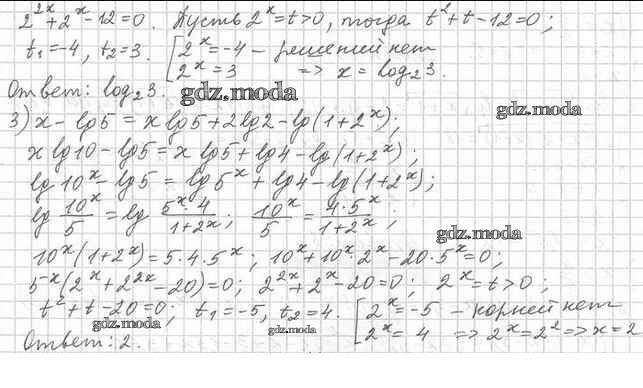 2^{2x}+2^x-12=0. Пусть 2^x=t>0, тогда t^2+t-12=0;
t_1=-4, t_2=3. [2^x=-4 - решений нет
2^x=3 => x=log_2 3.
Ответ: log_2 3. gdz.moda
gdz.moda
3) x-lg5=xlg5+2lg2-lg(1+2^x);
xlg10-lg5=xlg5+lg4-lg(1+2^x);
lg10^x-lg5=lg5^x+lg4-lg(1+2^x);
lg 10^x/5 = lg 5^x·4/1+2^x; 10^x/5 = 4·5^x/1+2^x;
gdz.moda
10^x(1+2^x)=5·4·5^x; 10^x+10^x·2^x-20·5^x=0;
5^{-x}(2^x+2^{2x}-20)=0; 2^{2x}+2^x-20=0; 2^x=t>0;
t^2+t-20=0; t_1=-5, t_2=4. [2^x=-5 - корней нет
gdz.moda gdz.moda
2^x=4 => 2^x=2^2=>x=2
Ответ: 2.